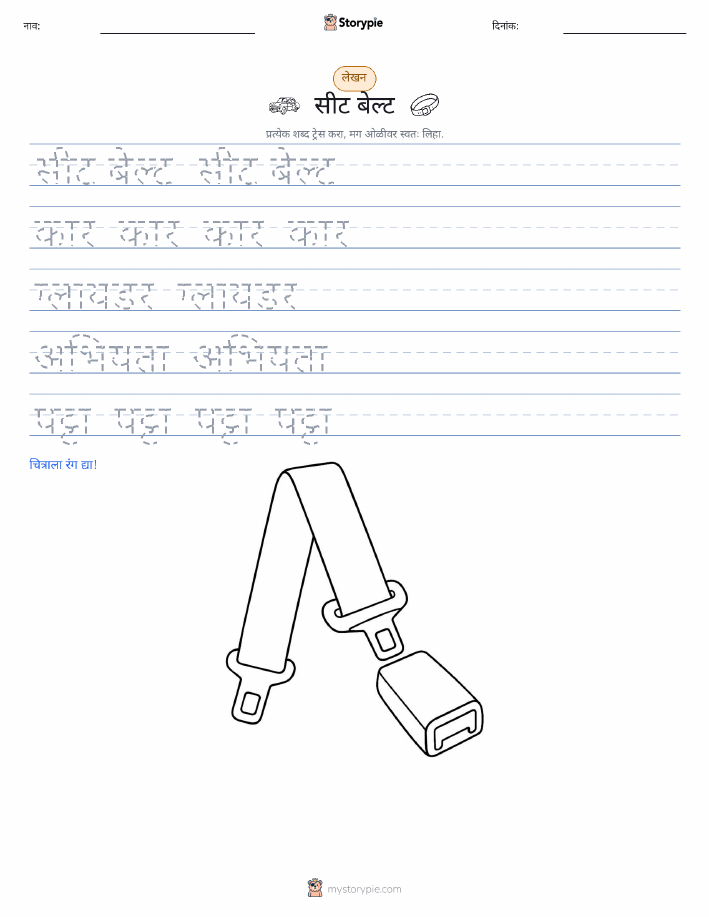 नाव: Storypie दिनांक:
लेखन
सीट बेल्ट
प्रत्येक शब्द ट्रेस करा, मग ओळीवर स्वतः लिहा.
सीट बेल्ट सीट बेल्ट
कार कार कार कार
ग्लायडर ग्लायडर
अभियंता अभियंता
पट्टा पट्टा पट्टा पट्टा
चित्राला रंग द्या!
mystorypie.com